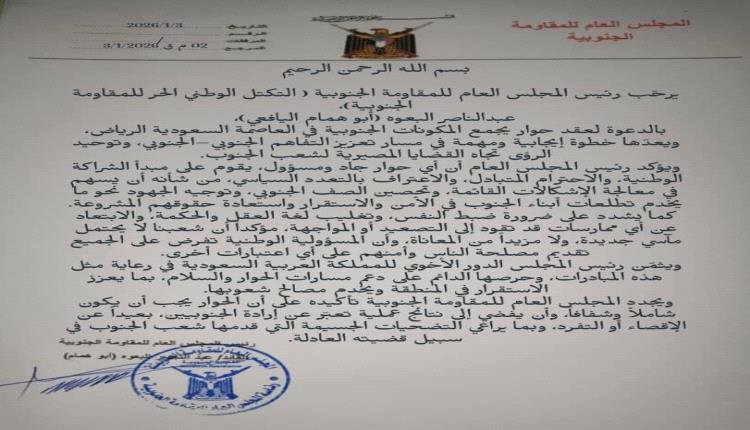 المجلس العام للمقاومة
الجنوبية
التاريخ 2026/1/3
الرقم
المرفقات
المرجع 02 م ق/3/1/2026
بسم الله الرحمن الرحيم
يرحّب رئيس المجلس العام للمقاومة الجنوبية ( التكتل الوطني الحر للمقاومة
الجنوبية)،
عبدالناصر البعوه (أبو همام اليافعي)،
بالدعوة لعقد حوار يجمع المكونات الجنوبية في العاصمة السعودية الرياض،
ويعدّها خطوة إيجابية ومهمة في مسار تعزيز التفاهم الجنوبي–الجنوبي، وتوحيد
الرؤى تجاه القضايا المصيرية لشعب الجنوب.
ويؤكد رئيس المجلس العام أن أي حوار جاد ومسؤول، يقوم على مبدأ الشراكة
الوطنية، والاحترام المتبادل، والاعتراف بالتعدد السياسي، من شأنه أن يسهم
في معالجة الإشكالات القائمة، وتحصين الصف الجنوبي، وتوجيه الجهود نحو ما
يخدم تطلعات أبناء الجنوب في الأمن والاستقرار واستعادة حقوقهم المشروعة.
كما يشدد على ضرورة ضبط النفس، وتغليب لغة العقل والحكمة، والابتعاد
عن أي ممارسات قد تقود إلى التصعيد أو المواجهة، مؤكداً أن شعبنا لا يحتمل
مآسي جديدة، ولا مزيداً من المعاناة، وأن المسؤولية الوطنية تفرض على الجميع
تقديم مصلحة الناس وأمنهم على أي اعتبارات أخرى.
ويثمّن رئيس المجلس الدور الأخوي للمملكة العربية السعودية في رعاية مثل
هذه المبادرات، وحرصها الدائم على دعم مسارات الحوار والسلام، بما يعزز
الاستقرار في المنطقة ويخدم مصالح شعوبها.
ويجدد المجلس العام للمقاومة الجنوبية تأكيده على أن الحوار يجب أن يكون
شاملاً وشفافاً، وأن يفضي إلى نتائج عملية تعبّر عن إرادة الجنوبيين، بعيداً عن
الإقصاء أو التفرد، وبما يراعي التضحيات الجسيمة التي قدمها شعب الجنوب في
سبيل قضيته العادلة.
رئيس المجلس العام للمقاومة الجنوبية
القائد/ عبد الناصر البعوه (أبو همام)